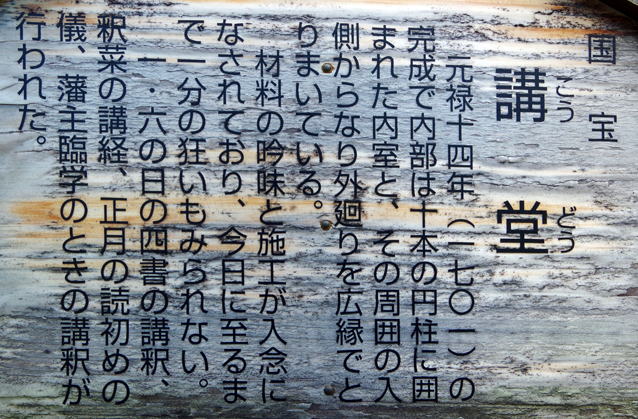 国宝
講堂
こうどう
元禄十四年(一七〇一)の
完成で内部は十本の円柱に囲
まれた内室と、その周囲の入
側からなり外廻りを広縁でと
りまいている。
材料の吟味と施工が入念に
なされており、今日に至るま
で一分の狂いもみられない。
一・六の日の四書の講釈、
釈菜の講経、正月の読初めの
儀、藩主臨学のときの講釈が
行われた。